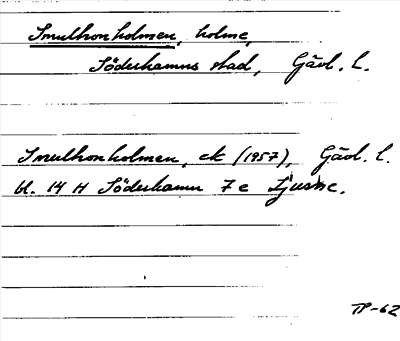 Smultronholmen, holme,
Söderhamns stad, Gävl. l.
Smultronholmen, ek (1957), Gävl. l.
bl. 14 H Söderhamn 7 e Ljusne.
TP-62